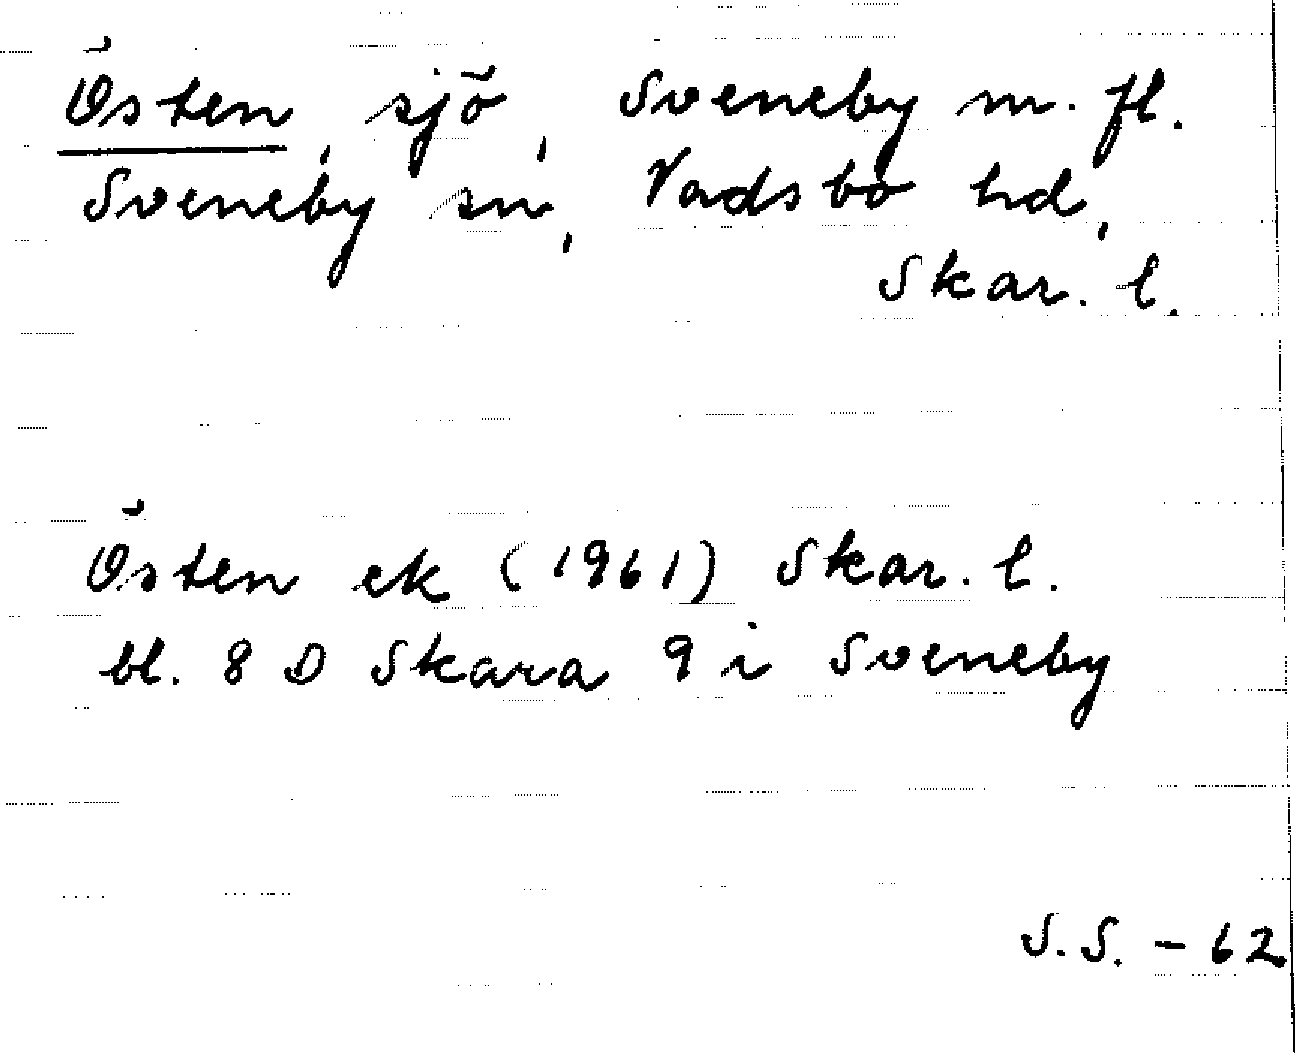 Östen, sjö, Sveneby m. fl.
Sveneby sn, Vadsbo hd,
Skar. l.
Östen ek (1961) Skar. l.
bl. 8 D Skara 9 i Sveneby
S.S. - 62